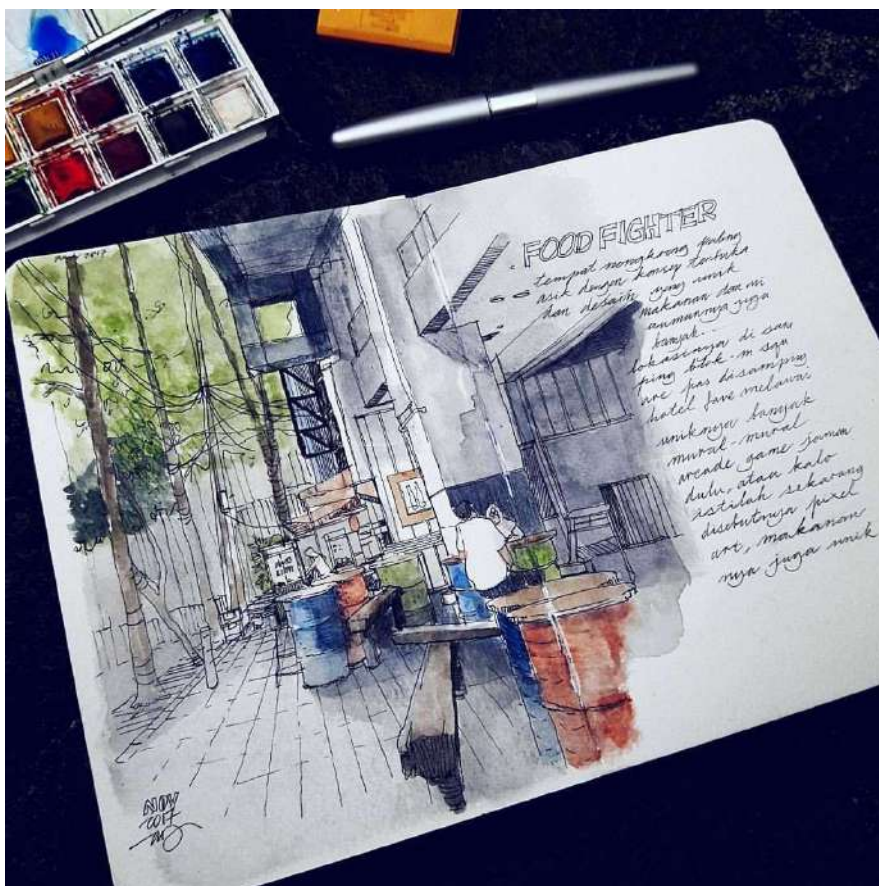 FOOD FIGHTER
tempat nongkrong paling
asik dengan konsep terbuka
dan desain yang unik
makanan dan mi
numannya juga
banyak.
lokasinya di sam
ping blok-m squ
are pas disamping
hotel fave melawai
uniknya banyak
mural-mural
arcade game jaman
dulu, atau kalo
istilah sekarang
disebutnya pixel
art, makanan
nya juga unik
NOV
2017